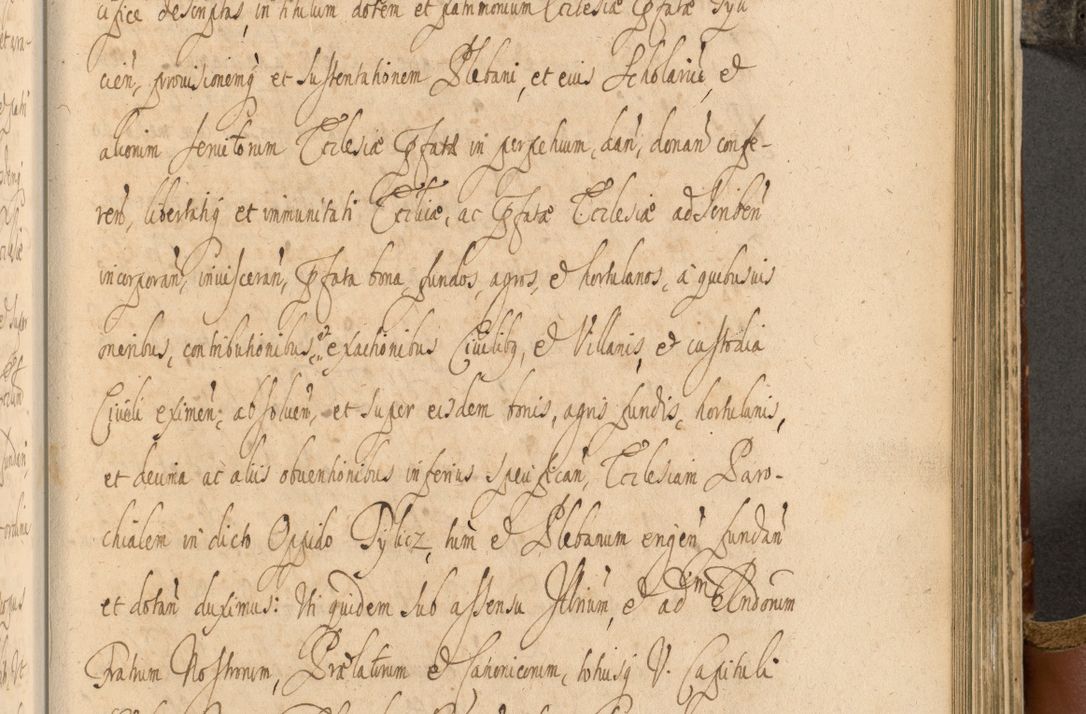 cifice descriptas, in titulum dotem et patrimonium Ecclesiæ pfatæ Tyli
cien, provisionemq et sustentationem Plebani, et eius Scholariu, et
aliorum seruitorum Ecclesiæ pfatæ in perpetuum, dan, donan confe-
ren, libertatiq et immunitati Eccliæ, ac pfatæ Ecclesiæ adscriben
incorporan, inuisceran, pfata bona fundos, agros, et hortulanos, a quibusuis
oneribus, contributionibus, exactionibus Ciuilibq, et Villanis, et custodia
Ciuili eximen, absoluen, et super eisdem bonis, agris fundis, hortulanis,
et decima ac aliis obuentionibus inferius specifican, Ecclesiam Paro-
chialem in dicto Oppido Tylicz, tum et Plebanum erigen fundan
et dotan duximus: Uti quidem sub assensu Illrium, et adm Rndorum
Fratrum Nostrorum, Prælatorum et Canonicorum, totiusq V. Capituli